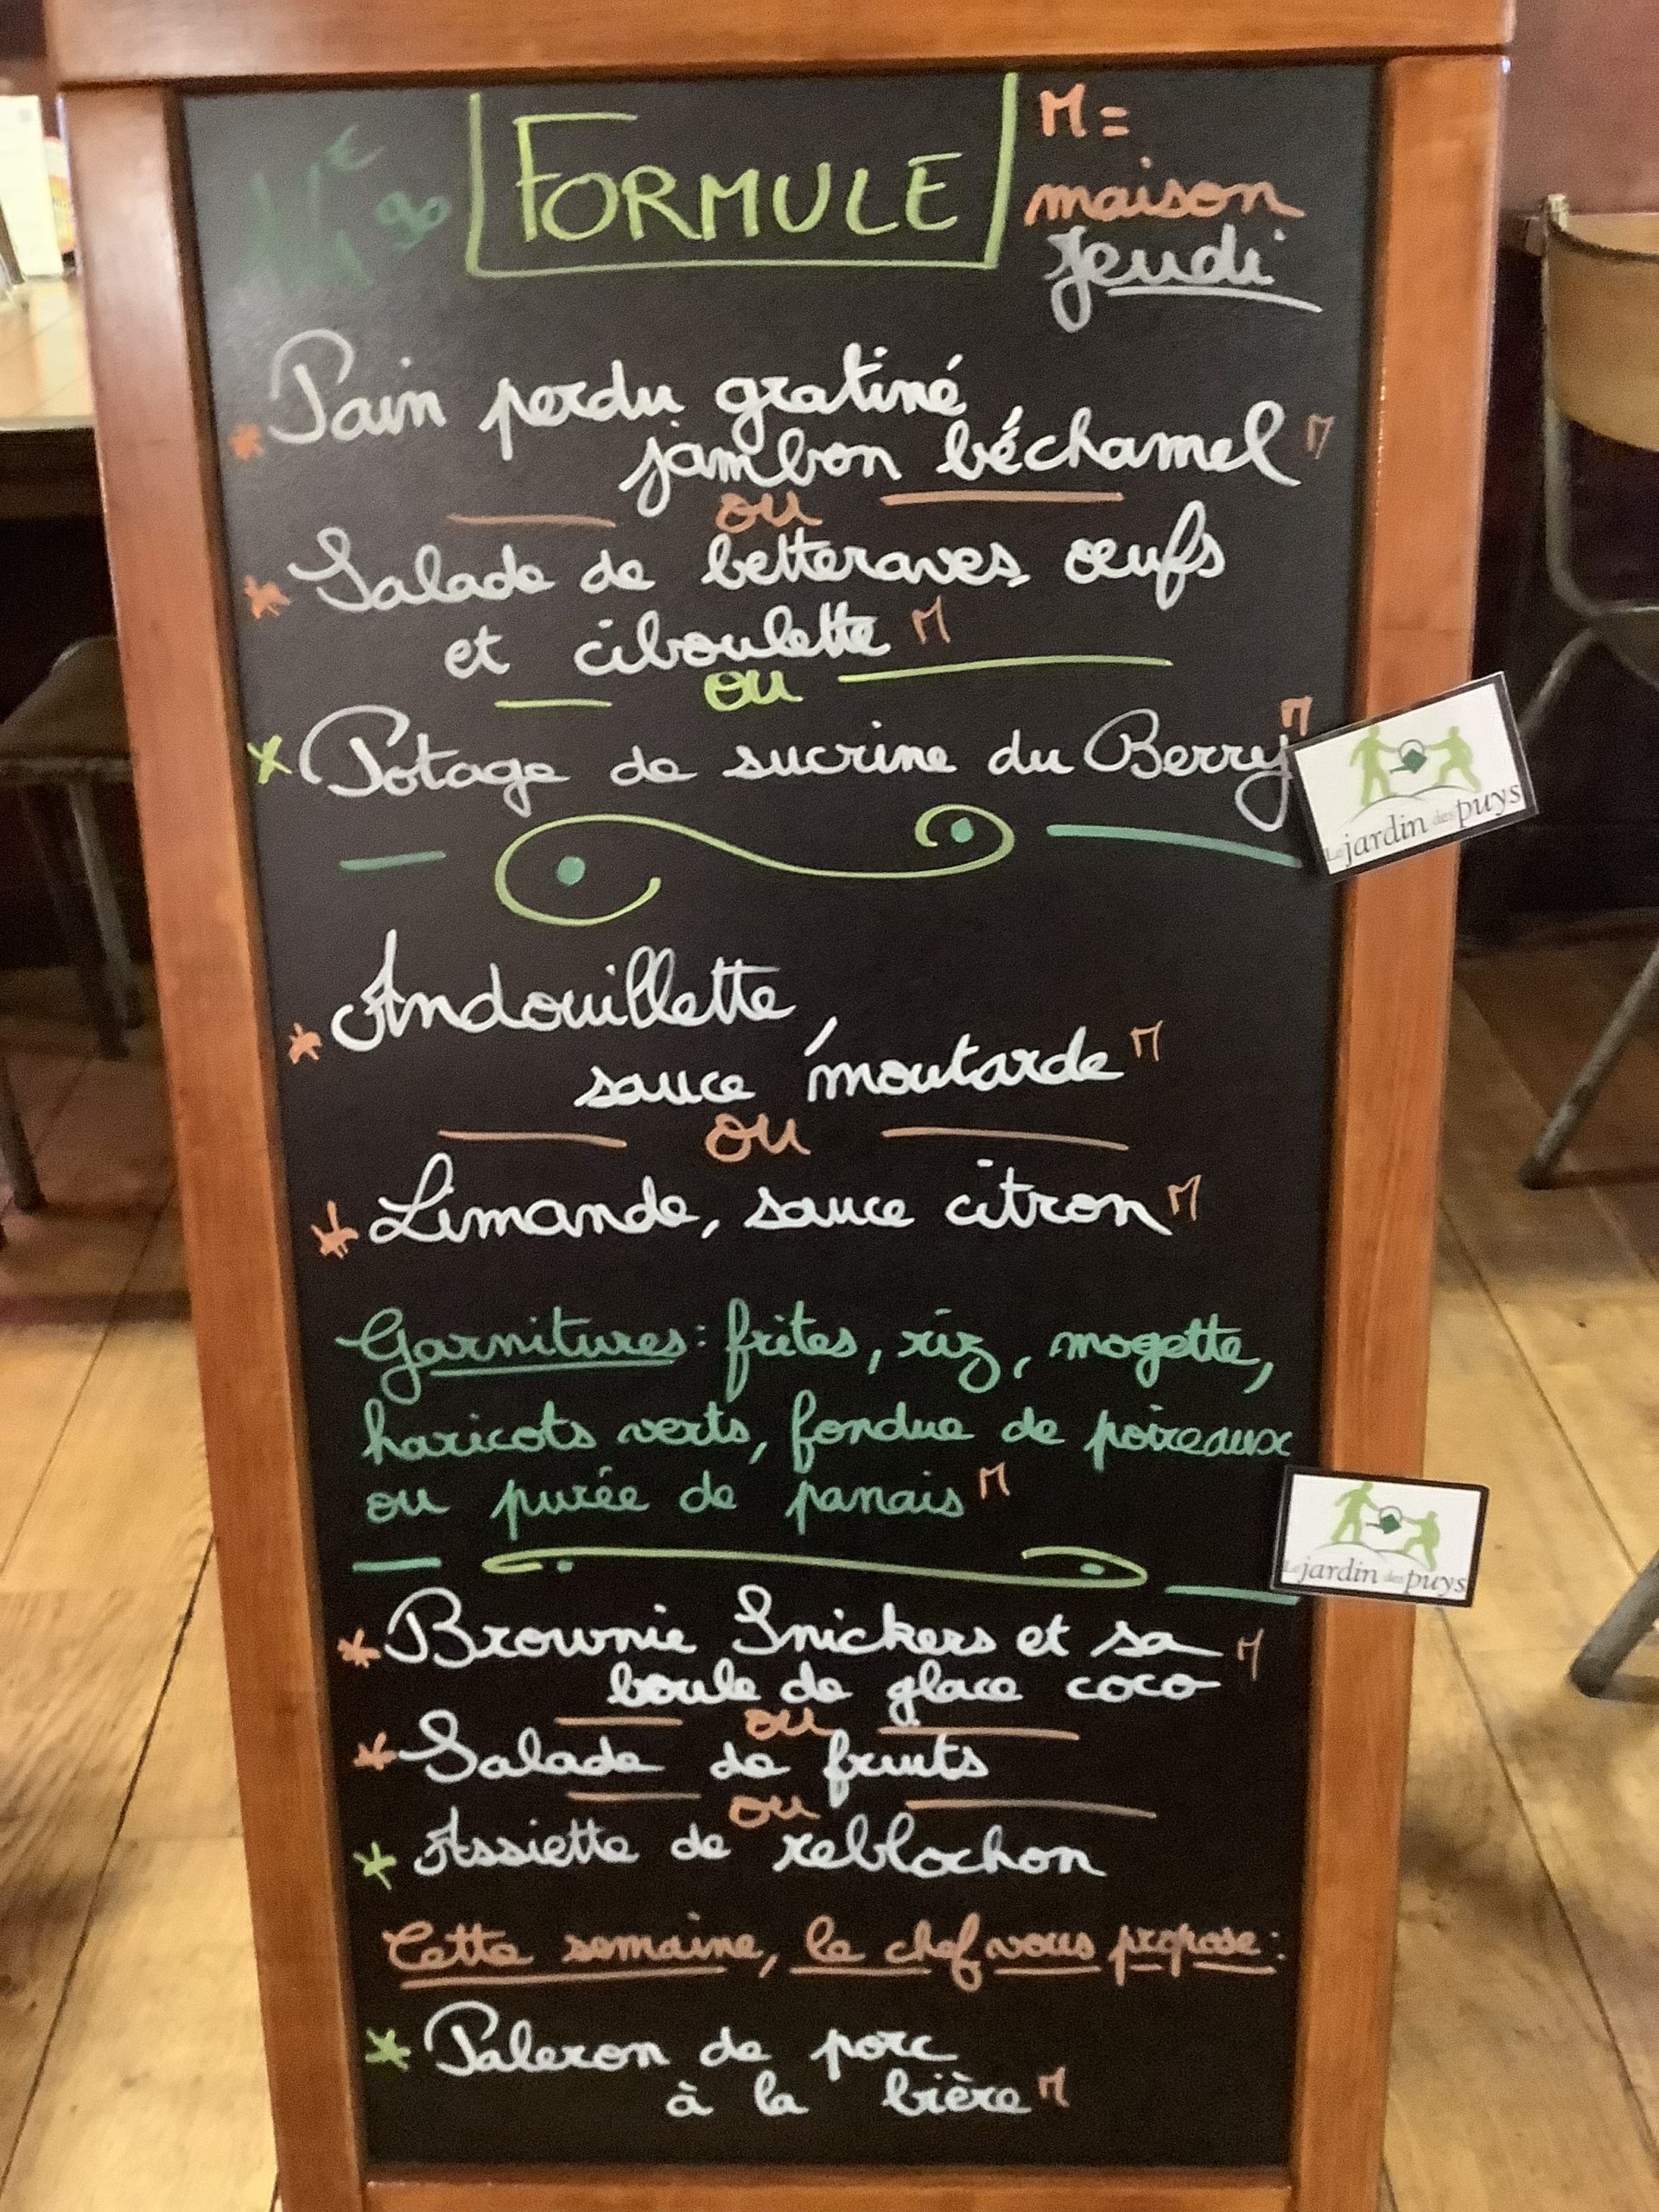 FORMULE
M =
maison
Jeudi
* Pain perdu gratiné,
jambon béchamel M
ou
* Salade de betteraves, œufs
et ciboulette M
ou
* Potage de sucrine du Berry M
Le jardin des puys
* Andouillette,
sauce moutarde M
ou
* Limande, sauce citron M
Garnitures : frites, riz, mogette,
haricots verts, fondue de poireaux
ou purée de panais M
Le jardin des puys
* Brownie Snickers et sa M
boule de glace coco
ou
* Salade de fruits
ou
* Assiette de reblochon
Cette semaine, le chef vous propose :
* Paleron de porc
à la bière M